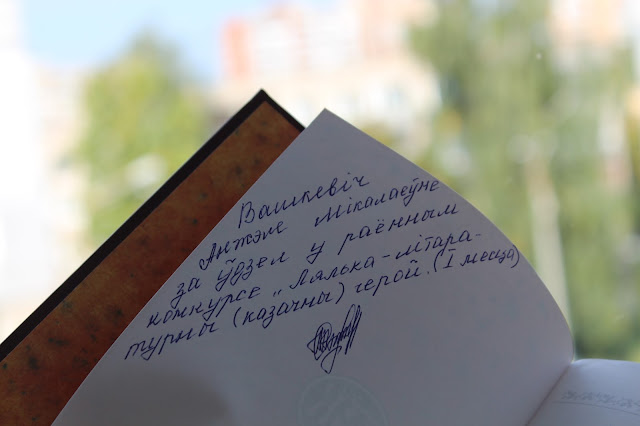 Вашкевіч
Анжэле Мікалаеўне
за ўдзел у раённым
конкурсе „Лялька-літара-
турны (казачны) герой. (I месца)